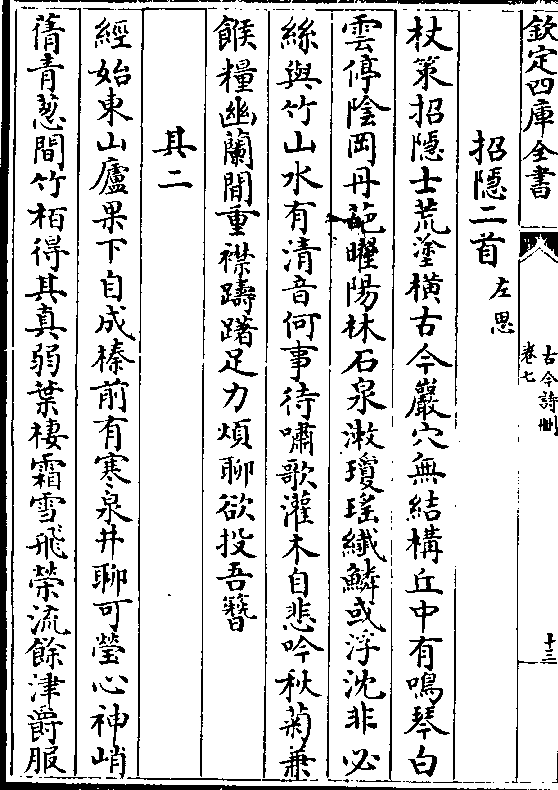 欽定四庫全書
古今詩刪
卷七
十三
招隱二首
左思
杖策招隱士荒塗橫古今巖穴無結構丘中有鳴琴白
雲停陰岡丹葩曜陽林石泉漱瓊瑤纖鱗或浮沈非必
絲與竹山水有清音何事待嘯歌灌木自悲吟秋菊兼
餱糧幽蘭間重襟躊躇足力煩聊欲投吾簪
其二
經始東山廬果下自成榛前有寒泉井聊可瑩心神峭
蒨青葱間竹栢得其真弱葉棲霜雪飛榮流餘津爵服